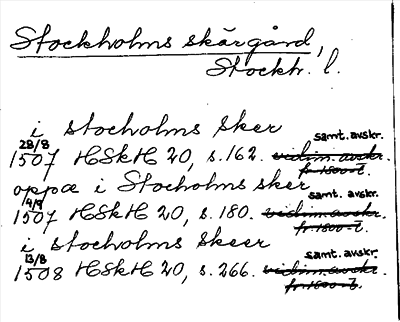 Stockholms skärgård,
Stockh. l.
i stocholms sker
28/8 samt. avskr.
1507 HSkH 20, s. 162. vidim. avskr.
fr 1800-t.
oppa i Stocholms sker
4/9 samt. avskr.
1507 HSkH 20, s. 180. vidim. avskr.
fr 1800-t.
i stocholms skeer
13/8 samt. avskr.
1508 HSkH 20, s. 266. vidim. avskr.
fr. 1800-t.